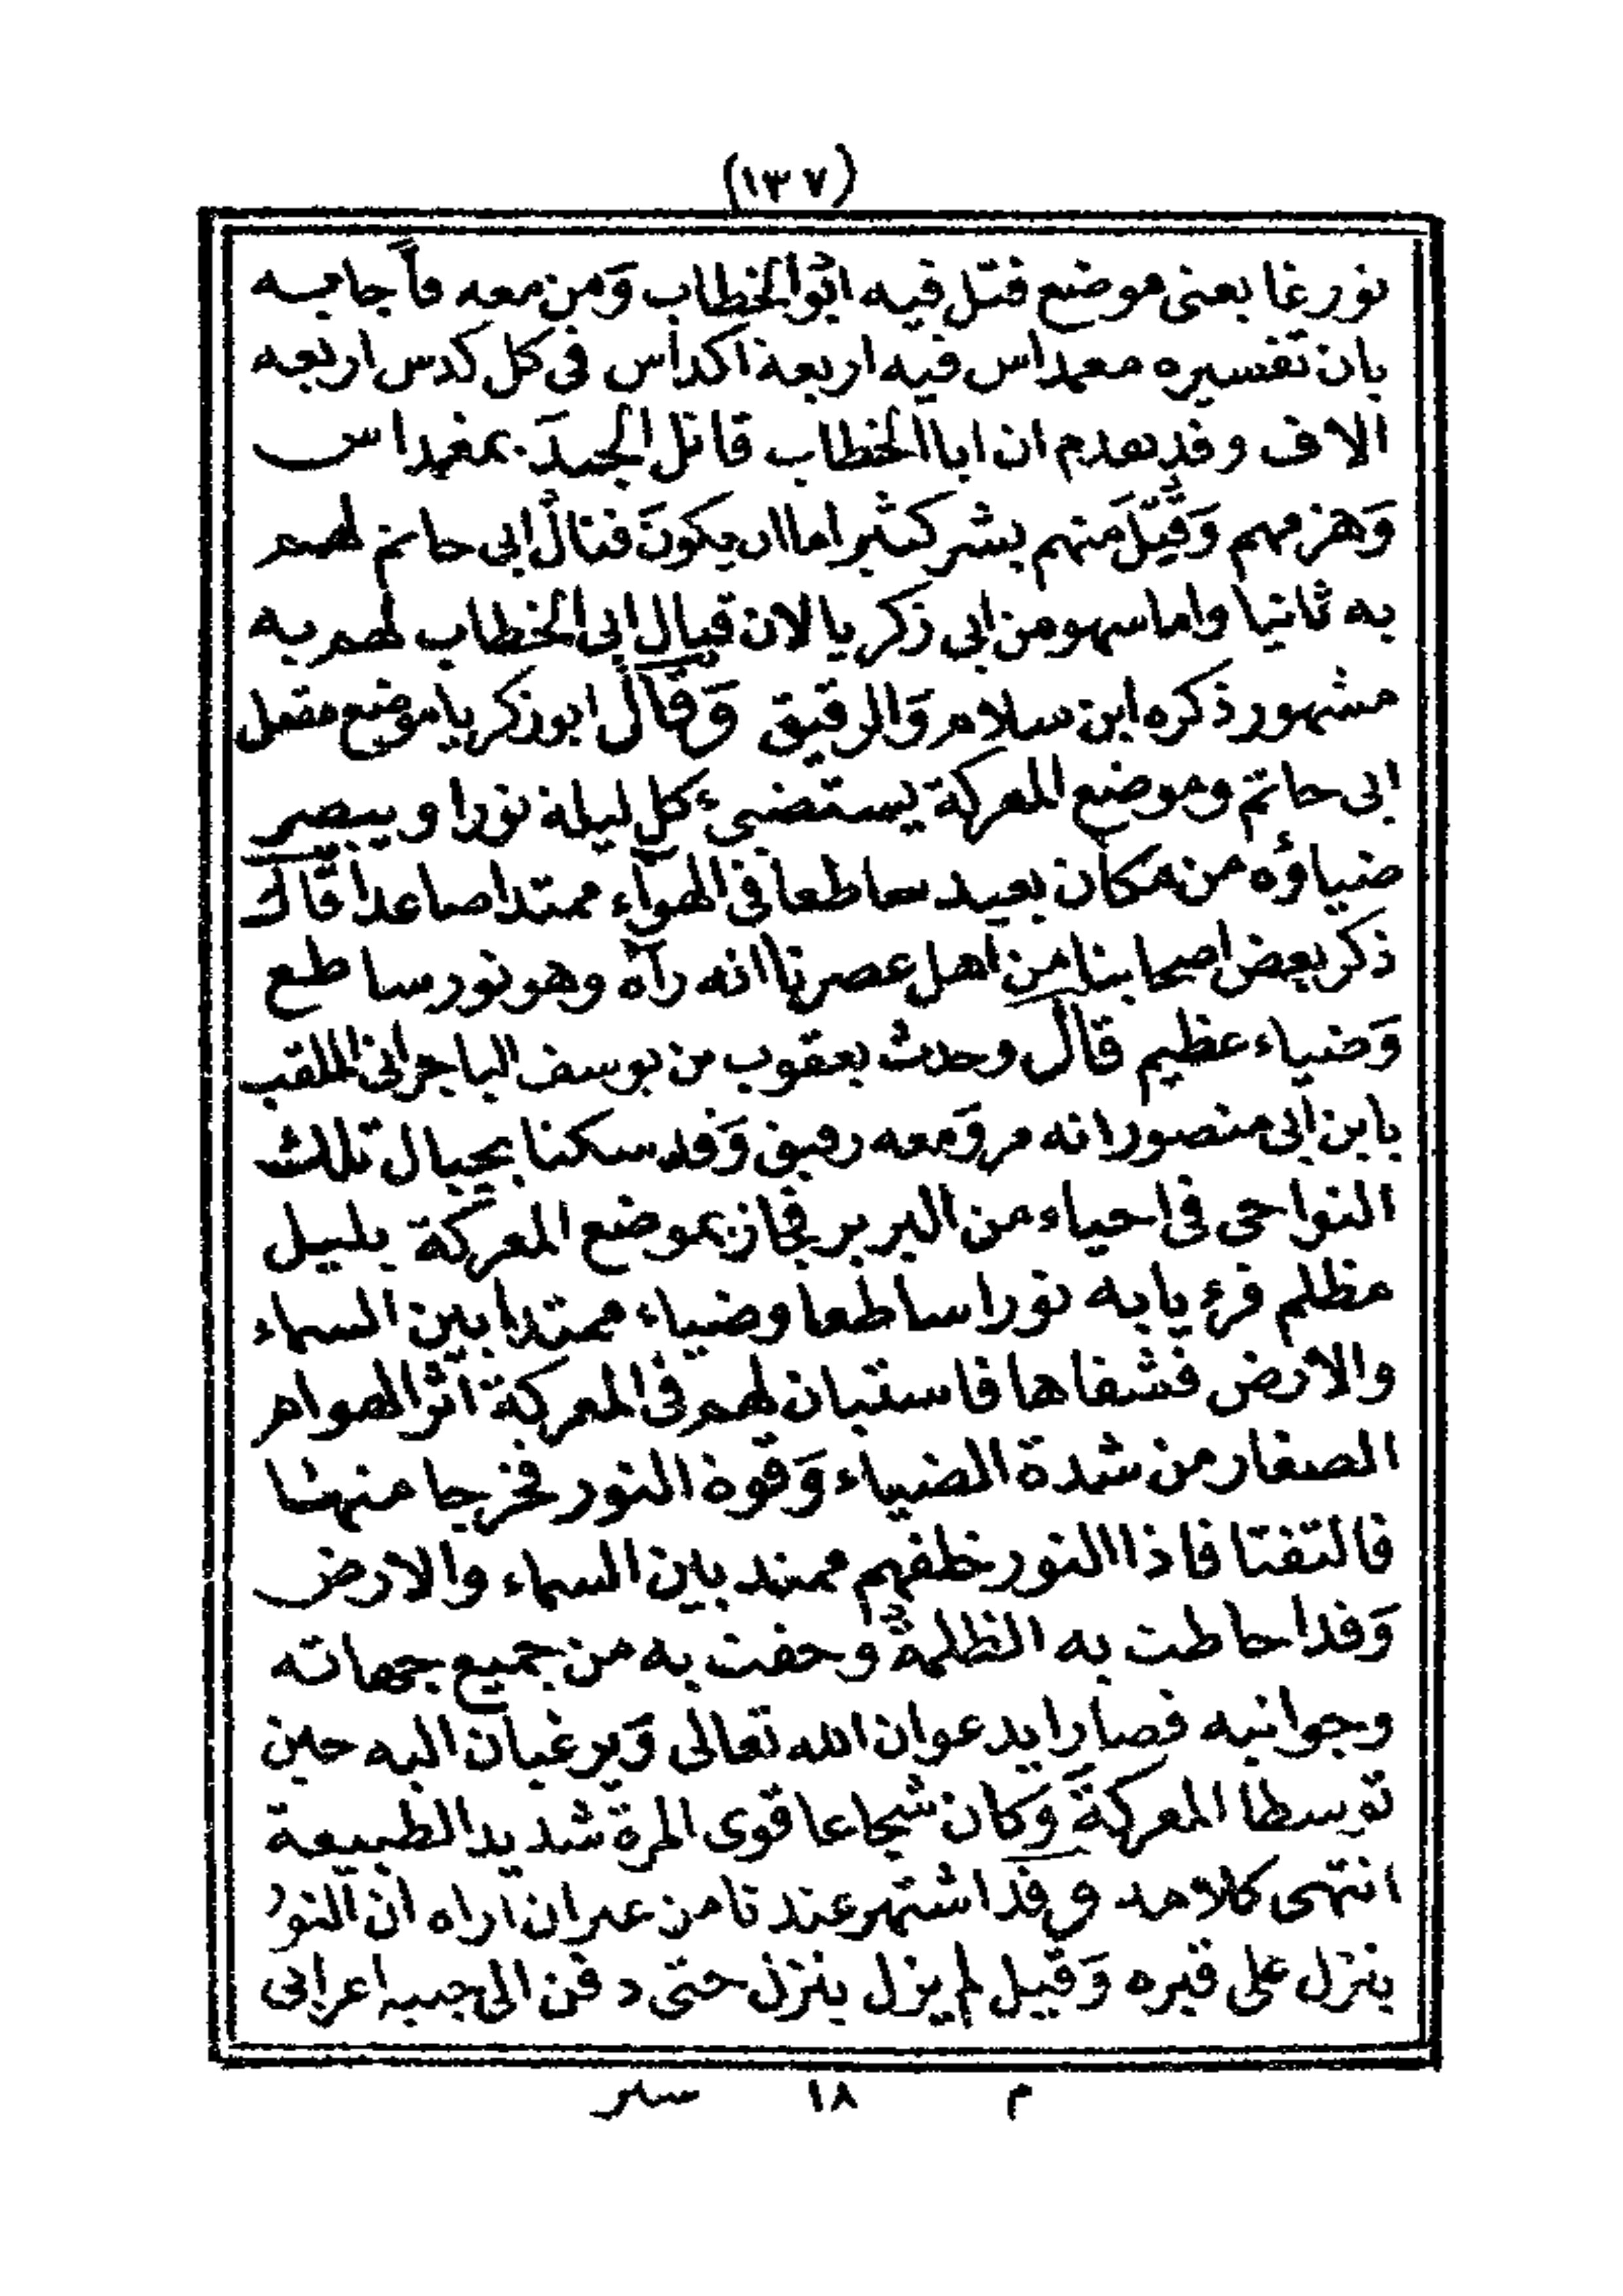 (١٣٧)
نورغا يعنى موضع قتل فيه ابوالخطاب وَمن معه فأجابه
بان تفسيره مغمداس فيه اربعة اكداس فى كل كدس اربعه
الاف وقد تقدم ان ابا الخطاب قاتل الجند بمغمداس
وَهزمهم وَقتِلَ منهم بشر كثير اما ان يكونَ قتالُ ابى حاتم لهم
به ثانيا واما سهو من ابى زكريا لان قتال ابى الخطاب لهم به
مشهور ذكره ابن سلام وَالرقيق وَقال ابوزكريا موضع مقتل
ابى حاتم وموضع المعركة يستضىء كل ليلة نورا ويبصر
ضياؤه من مكان بعيد ساطعا فى الهوآء ممتدا صاعدا قال
ذكر بعض اصحابنا من اهل عصرنا انه رآه وهو نور ساطع
وَضياء عظيم قال وحدث يعقوب بن يوسف الباجرانى الملقب
بابن ابى منصور انه مر وَمعه رفيق وَقد سكنا بجبال تلك
النواحى فى احياء من البربر فجاز بموضع المعركة بليل
مظلم فرءيا به نورا ساطعا وضياء ممتدا بين السماء
والارض فشفاها فاستبان لهم فى المعركة اثر الهوام
الصغار من شدة الضياء وَقوة النور فخرجا منها
فالتفتا فاذا النور خلفهم ممتد بين السماء والارض
وَقد احاطت به الظلمةُ وحفت به من جميع جهاته
وجوانبه فصارا يدعوان الله تعالى وَيرغبان اليه حين
توسطا المعركةَ وَكان شجاعا قوى المرة شديد الطبيعة
انتهى كلامه وقد اشتهر عندنا من غير ان اراه ان النورُ
ينزل على قبره وَقيل لم يزل ينزل حتى دفن الى جنبه اعرابى
م ١٨ سير